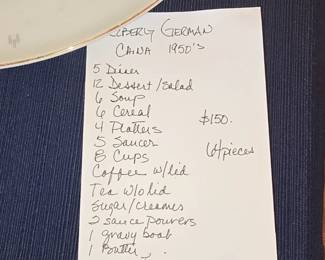 German
China 1950's
5 Diner
12 Dessert/Salad
6 Soup
6 Cereal
$150.
4 Platters
5 Saucer
64 pieces
8 Cups
Coffee w/lid
Tea w/o lid
Sugar/creamer
2 sauce pourers
1 gravy boat
1 Butter